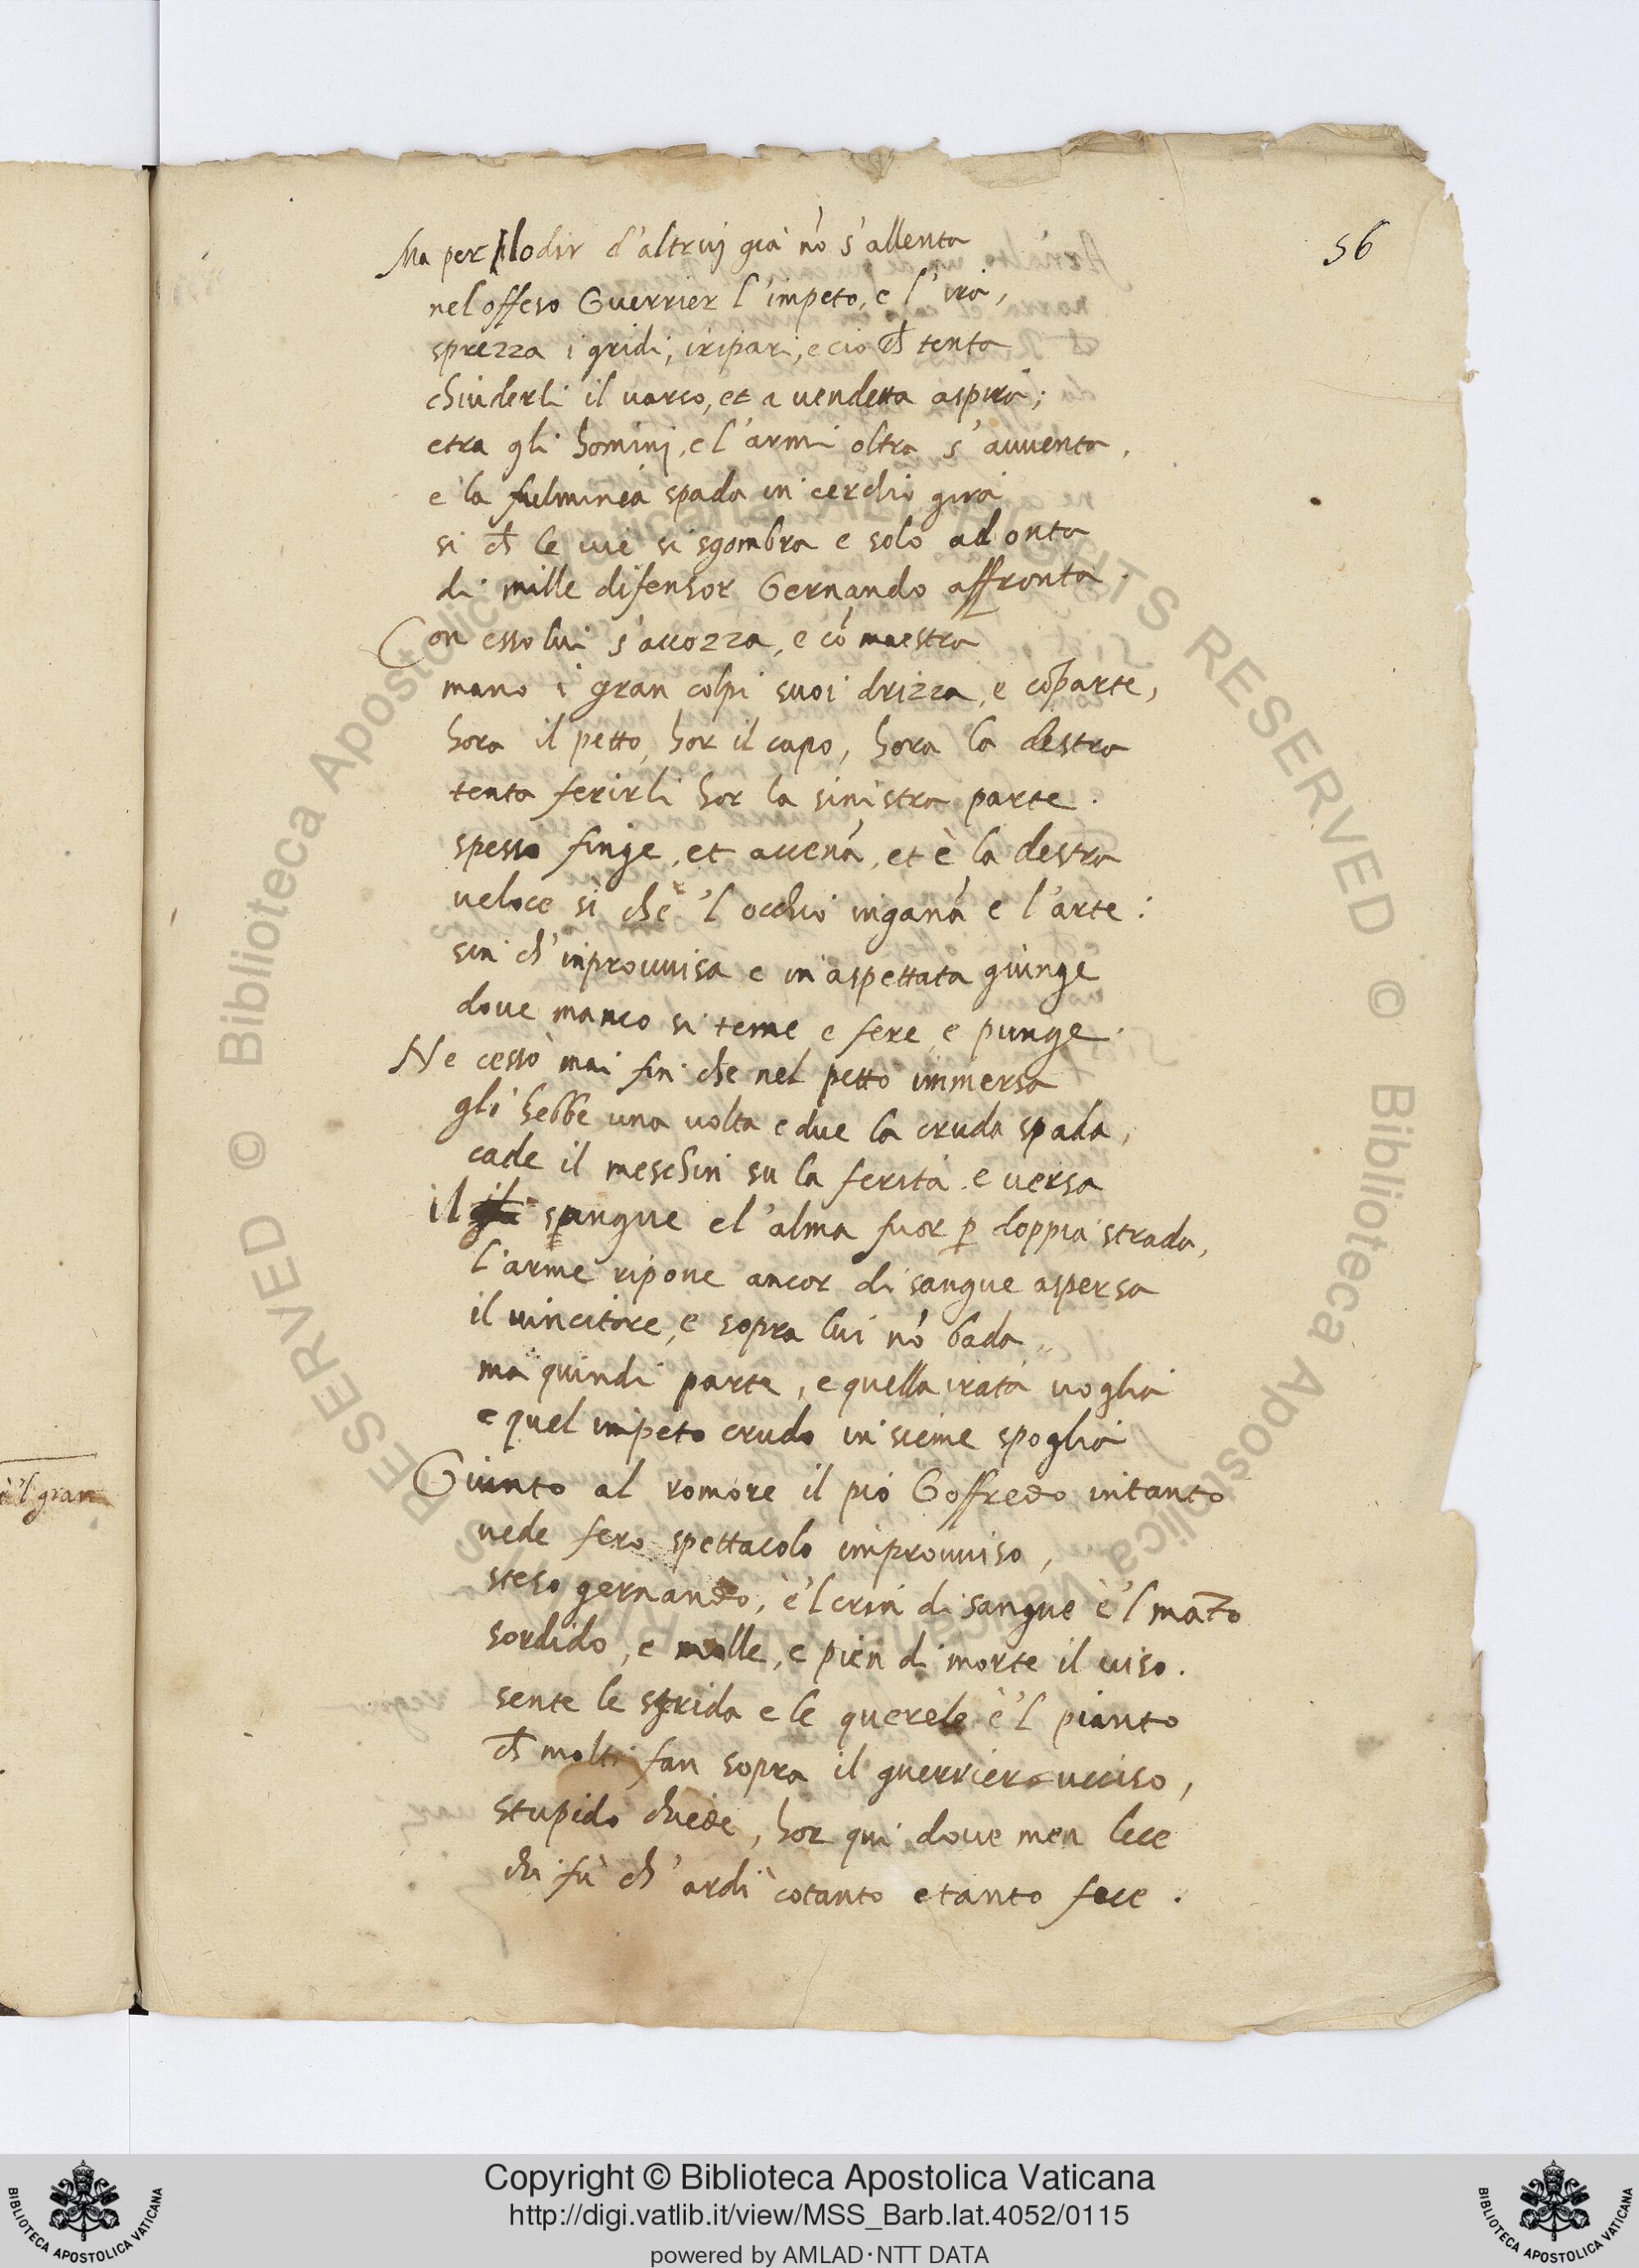 56
Ma per l'odir d'altruj già nõ s'allenta
nel offeso Guerrier l'impeto, e l'ira,
sprezza i gridi, iripari, e ciò ch̃ tenta
chiuderli il varco, et a vendetta aspira;
etra gli hominj, e l'armi oltra s'auuenta,
e la fulminea spada in cerchio gira
si ch̃ le uie si sgombra e solo ad onta
di mille difensor Gernando affronta.
Con esso lui s'accozza, e cõ maestra
mano i gran colpi suoi drizza, e cõparte,
hora il petto, hor il capo, hora la destra
tenta ferirli hor la sinistra parte.
spesso finge, et accenã, et è la destra
ueloce sì chè 'l occhio inganã e l'arte:
sin ch'inprouuisa e in aspettata giunge
doue manco si teme e fere, e punge.
Ne cessò mai fin che nel petto immersa
gli hebbe una uolta e due la cruda spada,
cade il meschin su la ferita e uersa
il sangue el'alma fuor ꝑ doppia strada,
l'arme ripone ancor di sangue aspersa
il uincitore, e sopra lui nõ bada,
ma quindi parte, e quella irata uoglia
e quel impeto crudo in sieme spoglia
Giunto al romore il pio Goffredo intanto
uede fero spettacolo improuuiso,
steso gernando, è'l crin di sangue è'l mãto
sordido, e molle, e pien di morte il uiso.
sente le strida e le querele è'l pianto
ch̃ molti fan sopra il guerriero ucciso,
stupido chiede, hor qui doue men lece
chi fù ch'ardì cotanto e tanto fece.
è'l gran
© Biblioteca Apostolica Vaticana ALL RIGHTS RESERVED
© Biblioteca Apostolica Vaticana ALL RIGHTS RESERVED
Copyright © Biblioteca Apostolica Vaticana
http://digi.vatlib.it/view/MSS_Barb.lat.4052/0115
powered by AMLAD·NTT DATA
BIBLIOTECA APOSTOLICA VATICANA
BIBLIOTECA APOSTOLICA VATICANA